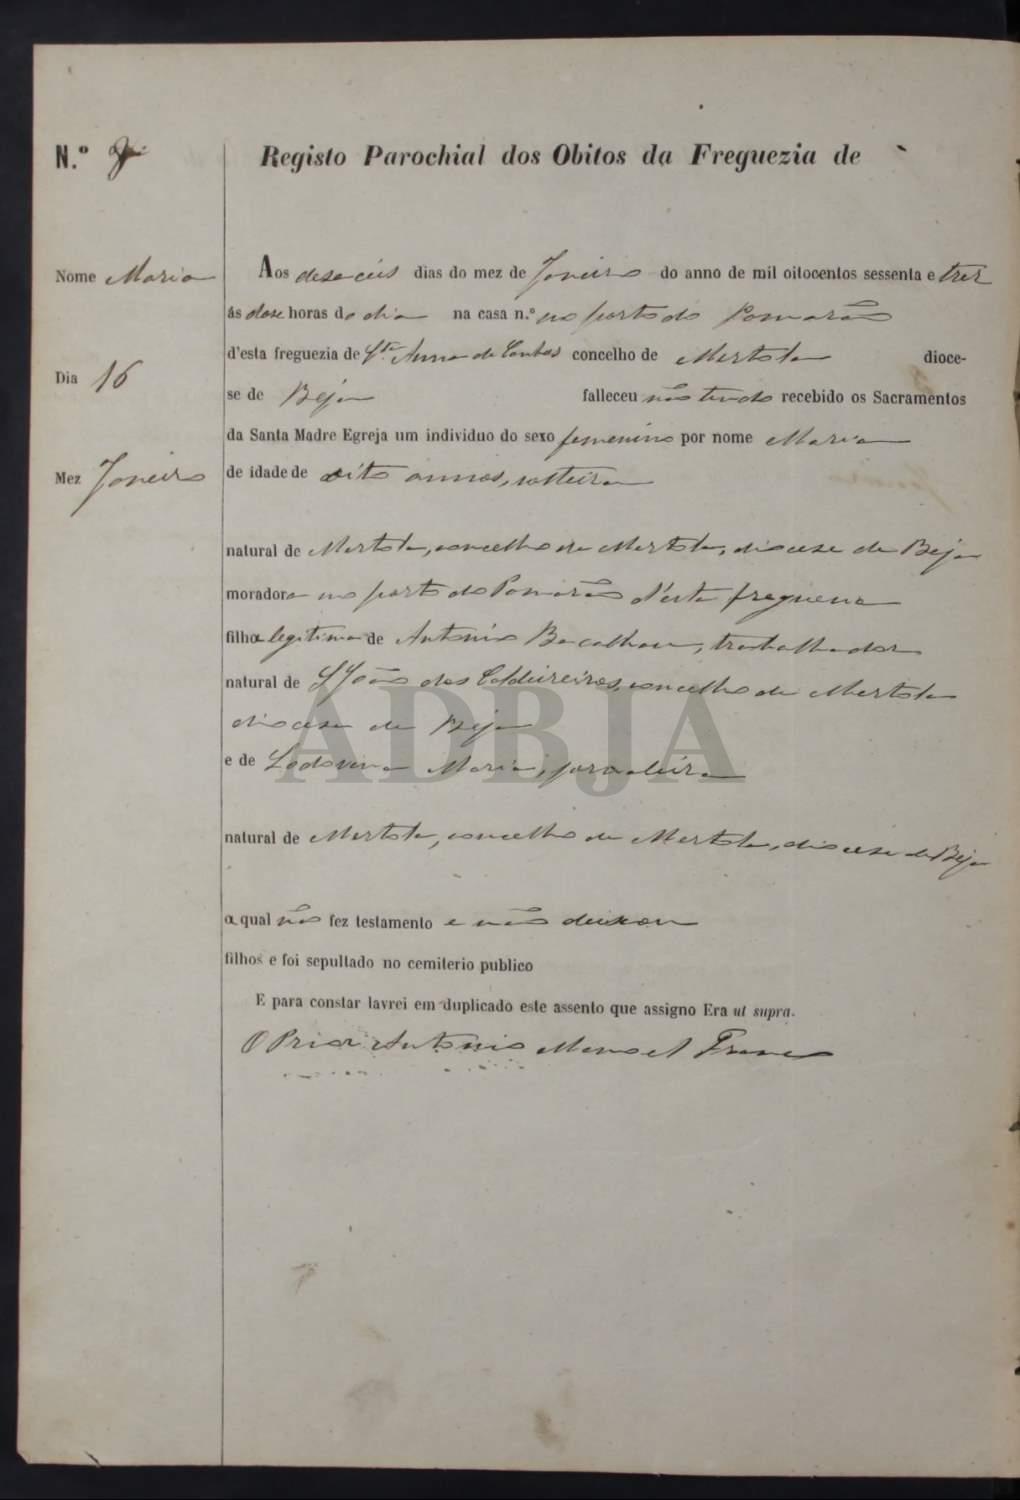 N.º 7
Registo Parochial dos Obitos da Freguezia de
Nome Maria
Aos deseceis dias do mez de Janeiro do anno de mil oitocentos sessenta e tres
ás dose horas do dia na casa n.º no porto do Pomarão
d'esta freguezia de Stª Anna de Cambas concelho de Mertola dioce-
Dia 16
se de Beja falleceu não tendo recebido os Sacramentos
da Santa Madre Egreja um individuo do sexo femenino por nome Maria
Mez Janeiro
de idade de oito annos, solteira
natural de Mertola, concelho de Mertola, diocese de Beja
moradora no porto do Pomarão d'esta freguezia
filha legitima de Antonio Bacalhau, trabalhador
natural de S João dos Caldeireiros, concelho de Mertola
diocese de Beja
e de Lodovina Maria,
natural de Mertola, concelho de Mertola, diocese de Beja
a qual não fez testamento e não deixou
filhos e foi sepultado no cemiterio publico
E para constar lavrei em duplicado este assento que assigno Era ut supra.
O Prior Antonio Manoel Franco
ADBJA